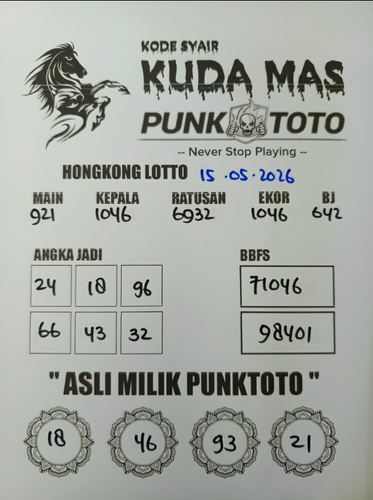 KODE SYAIR
KUDA MAS
PUNK TOTO
-- Never Stop Playing --
HONGKONG LOTTO 15.05.2026
MAIN KEPALA RATUSAN EKOR BJ
921 1046 6932 1046 642
ANGKA JADI BBFS
24 18 96 71046
66 43 32 98401
" ASLI MILIK PUNKTOTO "
18 46 93 21